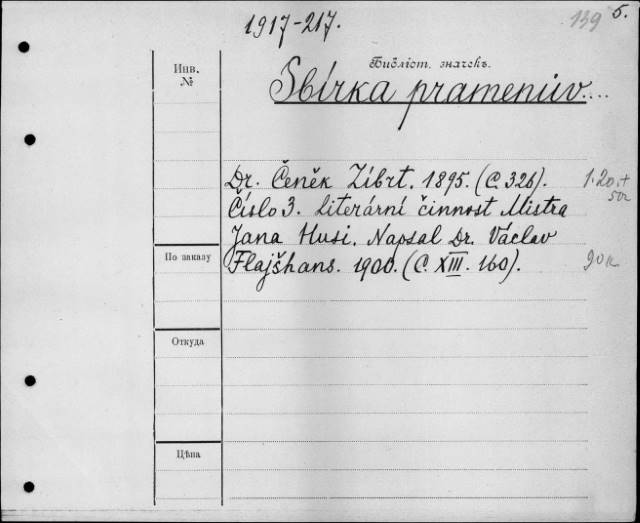 1917-217.
139 5.
Инв.
№
Библіот. значекъ.
Sbírka pramenúv....
Dr. Čeněk Zíbrt. 1895. (C. 326). 1.20.+
Číslo 3. Literární činnost Mistra
Jana Husi. Napsal Dr. Václav
По заказу
Flajšhans. 1900. (C. XIII. 160).
Откуда
Цѣна